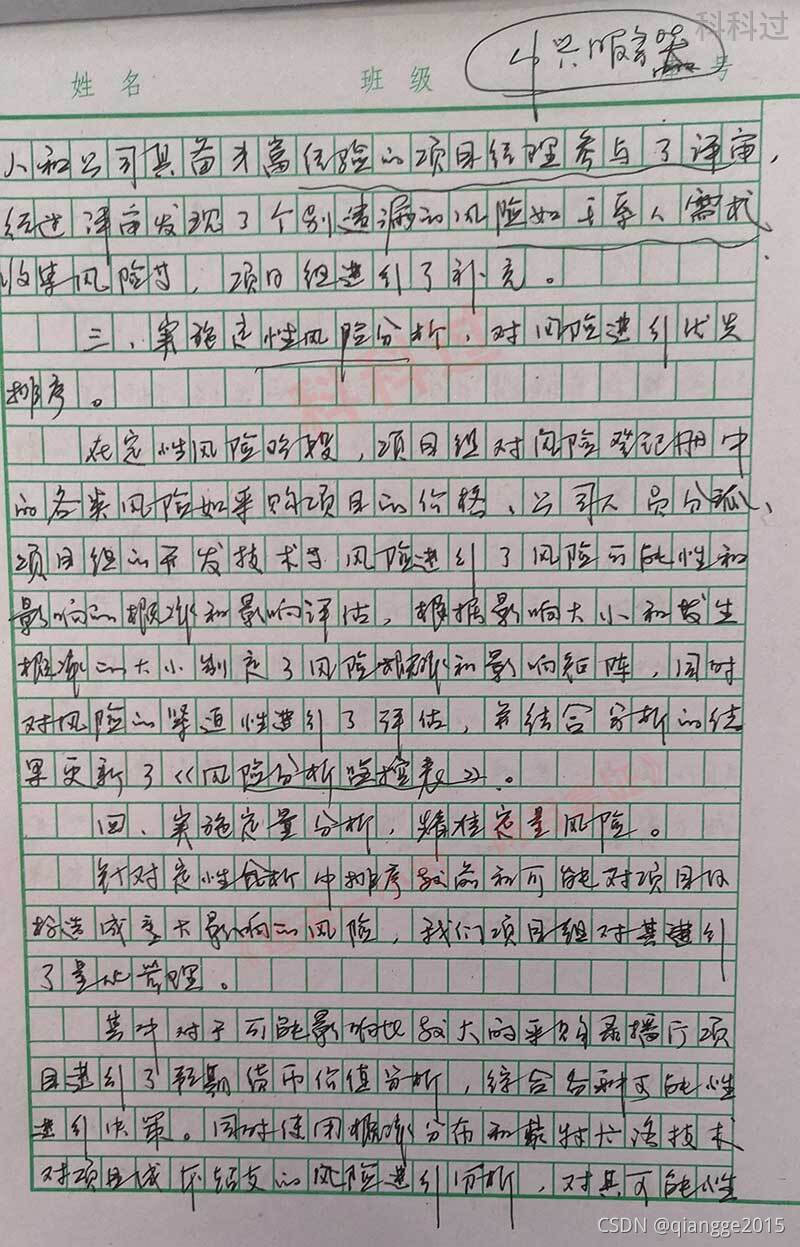 科科过
姓名 班级 号
中兴服务器
人和公司具备丰富经验的项目经理参与了评审,
经过评审发现了个别遗漏的风险如干系人需求
收集风险等,项目组进行了补充。
三、实施定性风险分析,对风险进行优先
排序。
在定性风险阶段,项目组对风险登记册中
的各类风险如采购项目的价格、公司人员分派、
项目组的开发技术等风险进行了风险可能性和
影响的概率和影响评估,根据影响大小和发生
概率的大小制定了风险概率和影响矩阵,同时
对风险的紧迫性进行了评估,并结合分析的结
果更新了《风险分析监控表》。
四、实施定量分析,精准定量风险。
针对定性分析中排序较高和可能对项目目
标造成重大影响的风险,我们项目组对其进行
了量化管理。
其中对于可能影响比较大的采购录播厅项
目进行了预期货币价值分析,综合各种可能性
进行决策。同时使用概率分布和蒙特卡洛技术
对项目成本超支的风险进行分析,对其可能性
CSDN @qiangge2015